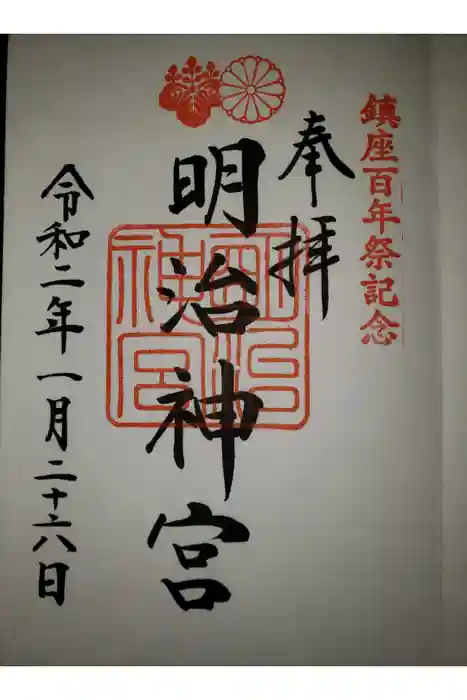 鎮座百年祭記念
奉拝
明治神宮
明治神宮
令和二年一月二十六日